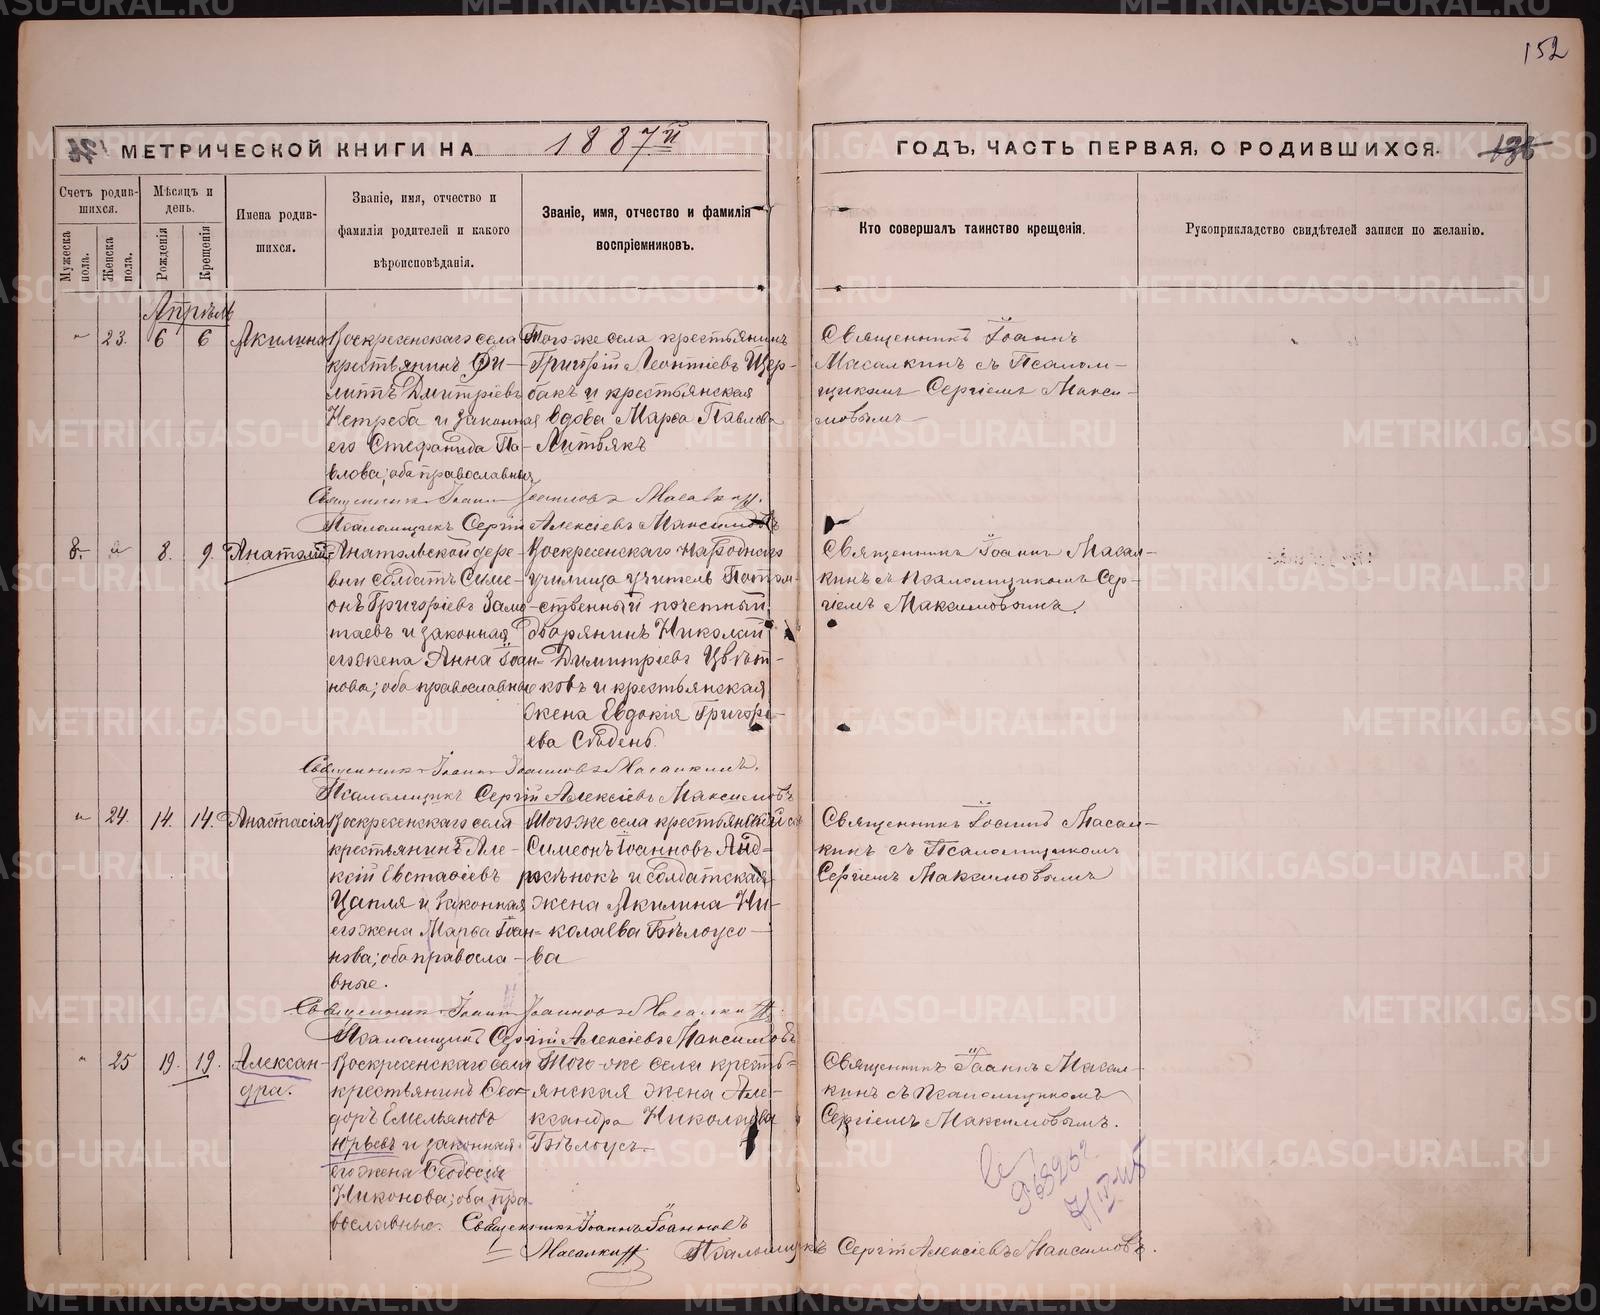 152
МЕТРИЧЕСКОЙ КНИГИ НА 1887й ГОДЪ, ЧАСТЬ ПЕРВАЯ, О РОДИВШИХСЯ.
Счетъ родив-
шихся.
Мужеска пола.
Женска пола.
Мѣсяцъ и день.
Рожденія
Крещенія
Имена родив-
шихся.
Званіе, имя, отчество и
фамилія родителей и какого
вѣроисповѣданія.
Званіе, имя, отчество и фамилія
воспріемниковъ.
Кто совершалъ таинство крещенія.
Рукоприкладство свидѣтелей записи по желанію.
Апрѣль
" 23. 6 6 Акилина
Воскресенскаго села
крестьянинъ Фи-
липпъ Дмитріевъ
Нетреба и законная
его Стефанида Па-
влова; оба православные
Того же села крестьянинъ
Григорій Леонтіевъ Щер-
бакъ и крестьянская
вдова Марѳа Павлова
Литвякъ
Священникъ Іоаннъ
Масалкинъ съ Псалом-
щикомъ Сергіемъ Макси-
мовымъ
Священникъ Іоаннъ Іоанновъ Масалкинъ.
Псаломщикъ Сергій Алексіевъ Максимовъ
8. " 8. 9. Анатолій
Анатольской дере-
вни солдатъ Симе-
онъ Григоріевъ
и законная
его жена Анна Іоан-
нова; оба православные
Воскресенскаго народнаго
училища учитель Потом-
ственный почетный
дворянинъ Николай
Димитріевъ Цвѣт-
ковъ и крестьянская
жена Евдокія Григорь-
ева Сѣдень.
Священникъ Іоаннъ Масал-
кинъ съ псаломщикомъ Сер-
гіемъ Максимовымъ.
Священникъ Іоаннъ Іоанновъ Масалкинъ.
Псаломщикъ Сергій Алексіевъ Максимовъ
" 24. 14. 14. Анастасія
Воскресенскаго села
крестьянинъ Але-
ксій Евстаѳіевъ
Цапля и законная
его жена Марѳа Іоан-
нова; оба правосла-
вные.
Того же села крестьянскій
Симеонъ Іоанновъ
и солдатская
жена Акилина Ни-
колаева Бѣлоусо-
ва
Священникъ Іоаннъ Масал-
кинъ съ Псаломщикомъ
Сергіемъ Максимовымъ
Священникъ Іоаннъ Іоанновъ Масалкинъ.
Псаломщикъ Сергій Алексіевъ Максимовъ
" 25 19. 19. Алексан-
дра.
Воскресенскаго села
крестьянинъ Ѳео-
доръ Емельяновъ
Юрьевъ и законная
его жена Ѳеодосія
Никонова; оба пра-
вославные.
Того же села кресть-
янская жена Але-
ксандра Николаева
Бѣлоусъ
Священникъ Іоаннъ Масал-
кинъ съ псаломщикомъ
Сергіемъ Максимовымъ.
Священникъ Іоаннъ Іоанновъ
Масалкинъ. Псаломщикъ Сергій Алексіевъ Максимовъ.
METRIKI.GASO-URAL.RU